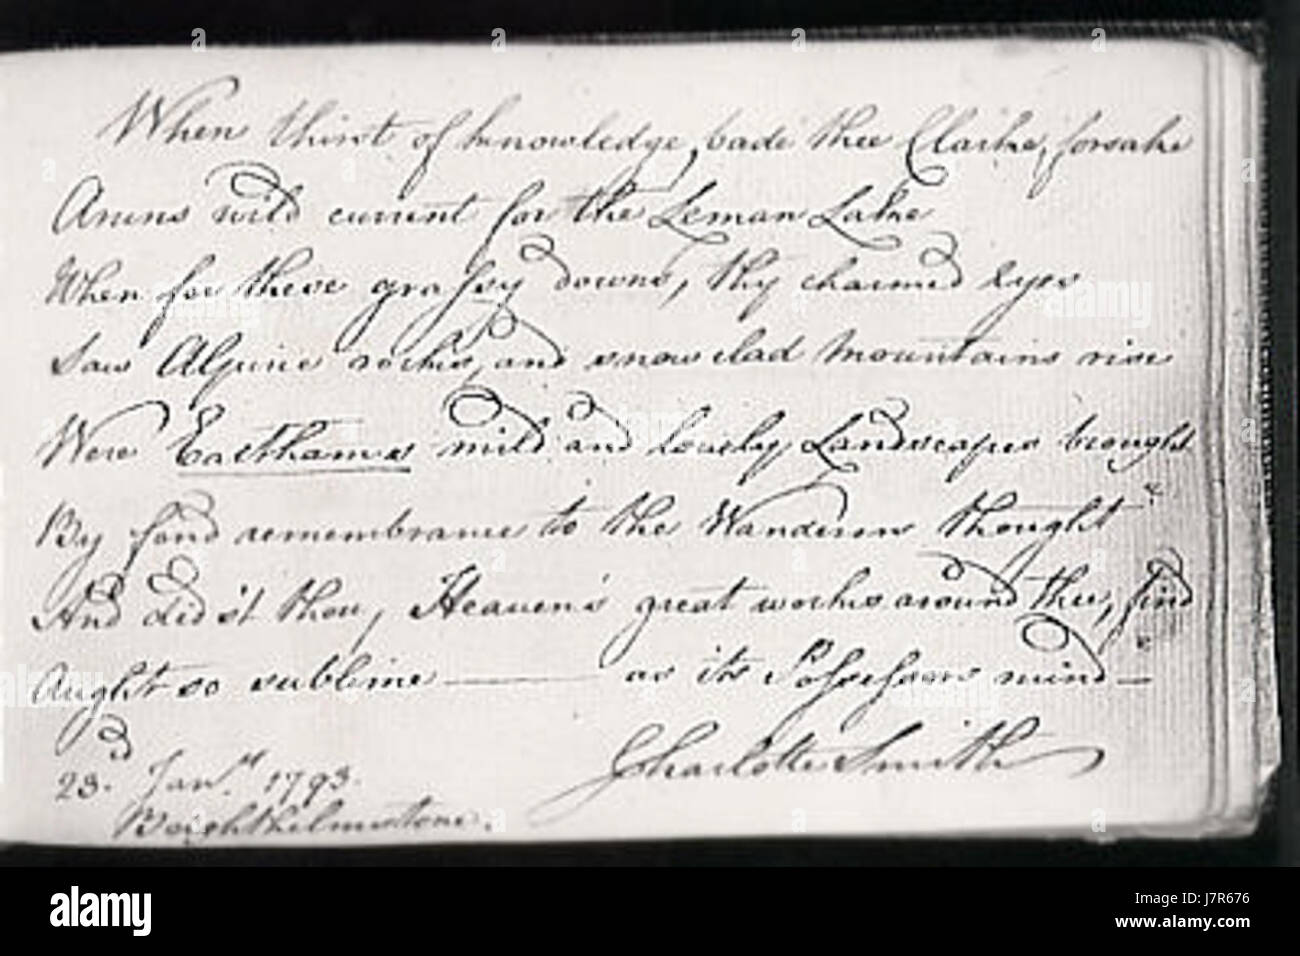 When thirst of knowledge, bade thee Clarke, forsake
Aruns wild current for the Leman Lake
When for these grassy downs, thy charmed eyes
Saw Alpine rocks, and snow clad mountains rise
Were Earthams mild and lovely Landscapes brought
By fond remembrance to the Wanderers thought
And did'st thou, Heaven's great works around thee, find
Aught so sublime — as its Possessors mind —
Charlotte Smith
23.d Jan.y 1793.
Brighthelmstone.
alamy
alamy
J7R676
www.alamy.com